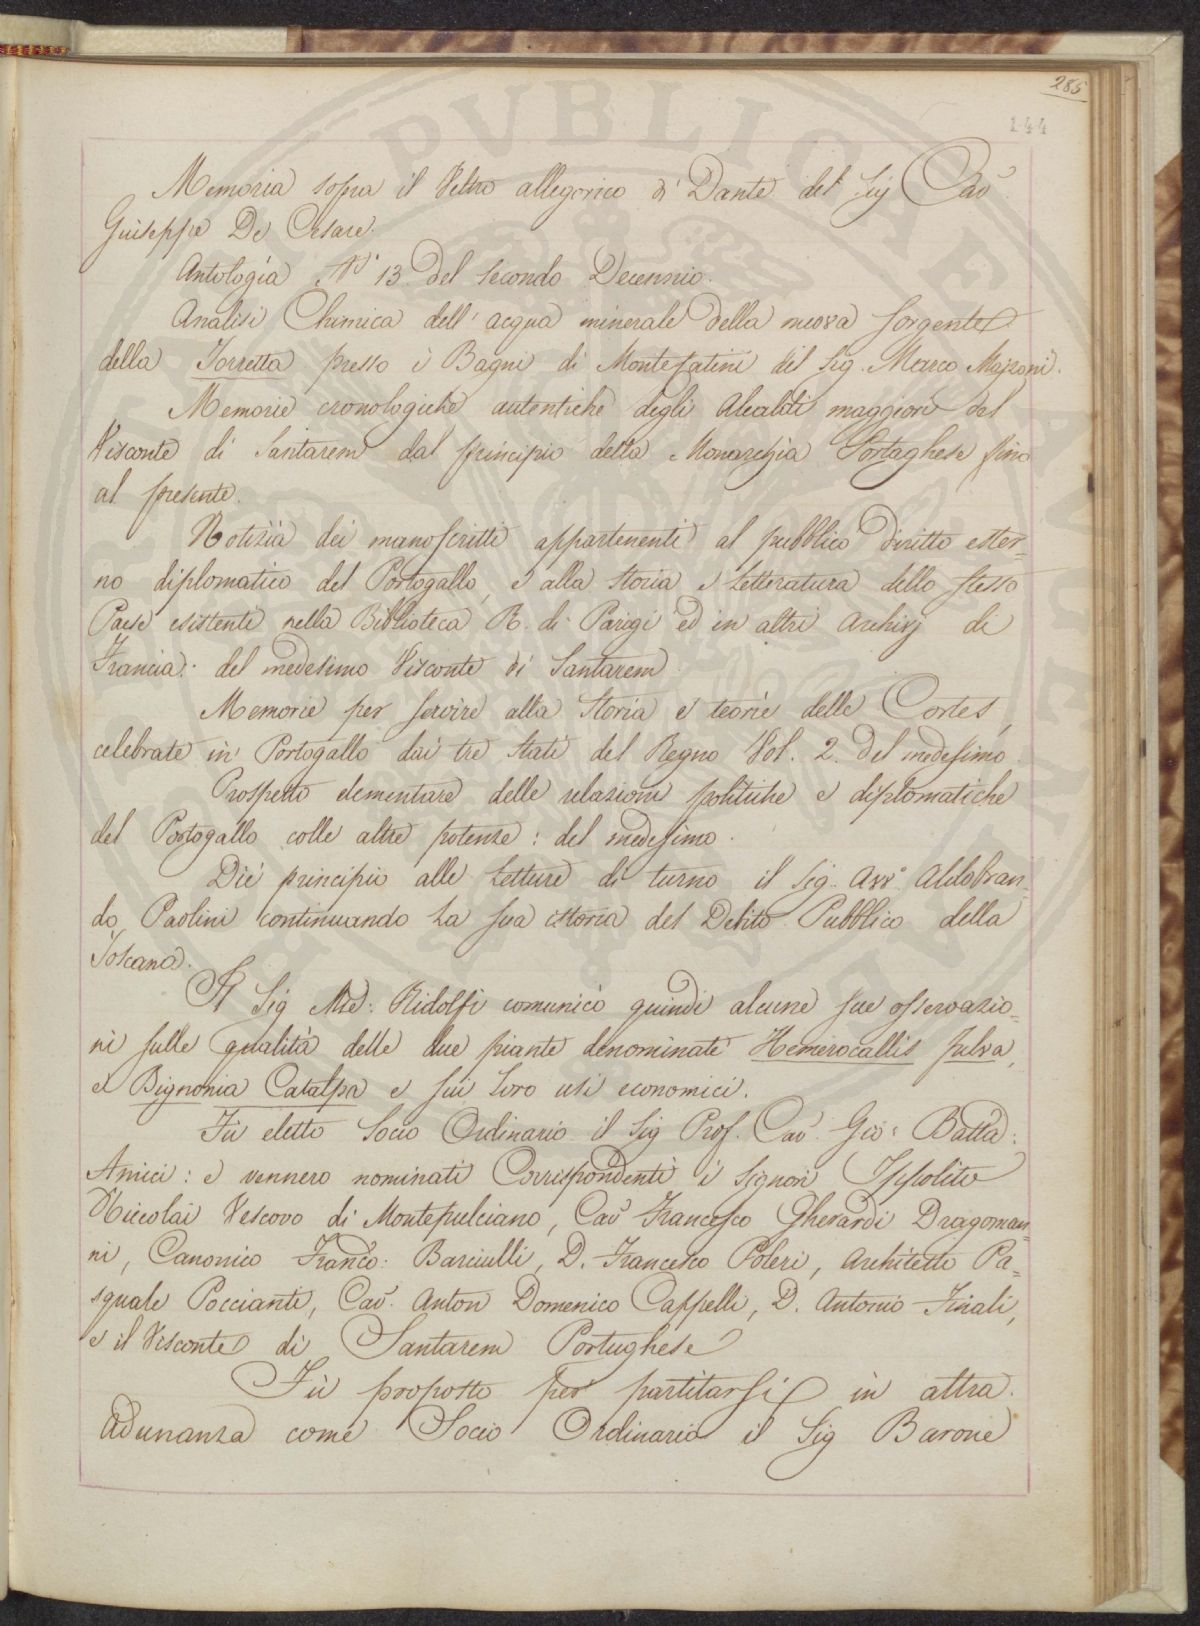 285
144
Memoria sopra il Veltro allegorico di Dante del Sig Cav.
Giuseppe De Cesare.
Antologia N.° 13 del secondo Decennio.
Analisi Chimica dell' acqua minerale della nuova sorgente
della Torretta presso i Bagni di Montecatini del Sig. Marco
Memorie cronologiche autentiche degli Alcaldi maggiori dal
Visconte di Santarem dal principio della Monarchia Portoghese fino
al presente.
Notizia dei manoscritti appartenenti al pubblico diritto ester=
no diplomatico del Portogallo, e alla storia e letteratura dello stesso
Paese esistenti nella Biblioteca R. di Parigi ed in altri Archivj di
Francia: del medesimo Visconte di Santarem.
Memorie per servire alla Storia e teorie delle Cortes,
celebrate in Portogallo dai tre Stati del Regno Vol. 2. del medesimo.
Prospetto elementare delle relazioni politiche e diplomatiche
del Portogallo colle altre potenze: del medesimo.
Diè principio alle letture di turno il Sig. Avv.° Aldobran=
do Paolini continuando la sua istoria del Debito Pubblico della
Toscana.
Il Sig Mse: Ridolfi comunicò quindi alcune sue osservazio=
ni sulle qualità delle due piante denominate Hemerocallis fulva,
e Bignonia Catalpa e sui loro usi economici.
Fù eletto Socio Ordinario il Sig Prof. Cav. Gio: Batta:
Amici: e vennero nominati Corrispondenti i Signori Ippolito
Niccolai Vescovo di Montepulciano, Cav Francesco Gherardi Dragoman=
ni, Canonico Franco: Barciulli, D. Francesco Poleri, Architetto Pa=
squale Poccianti, Cav. Anton Domenico Cappelli, D. Antonio Finali,
e il Visconte di Santarem Portughese
Fù proposto per partitarsi in altra
Adunanza come Socio Ordinario il Sig Barone